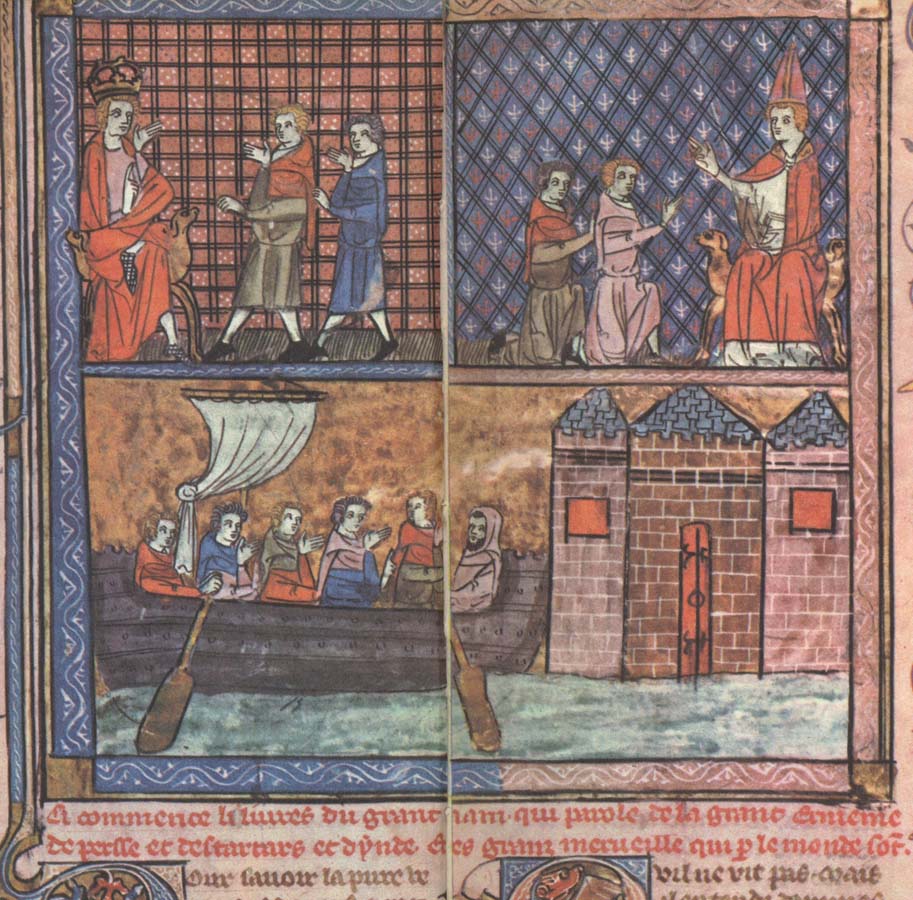 Ci commence li livres du grant kaam qui parole de la grant ermenie
de persse et des tartars et dynde et des granz merveille qui p le monde sont
Pour savoir la pure ve
vil ne vit pas mais